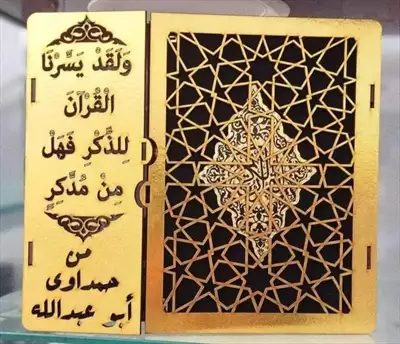 وَلَقَدْ يَسَّرْنَا
الْقُرْآنَ
لِلذِّكْرِ فَهَلْ
مِنْ مُدَّكِرٍ
من
حمداوى
أبو عبدالله